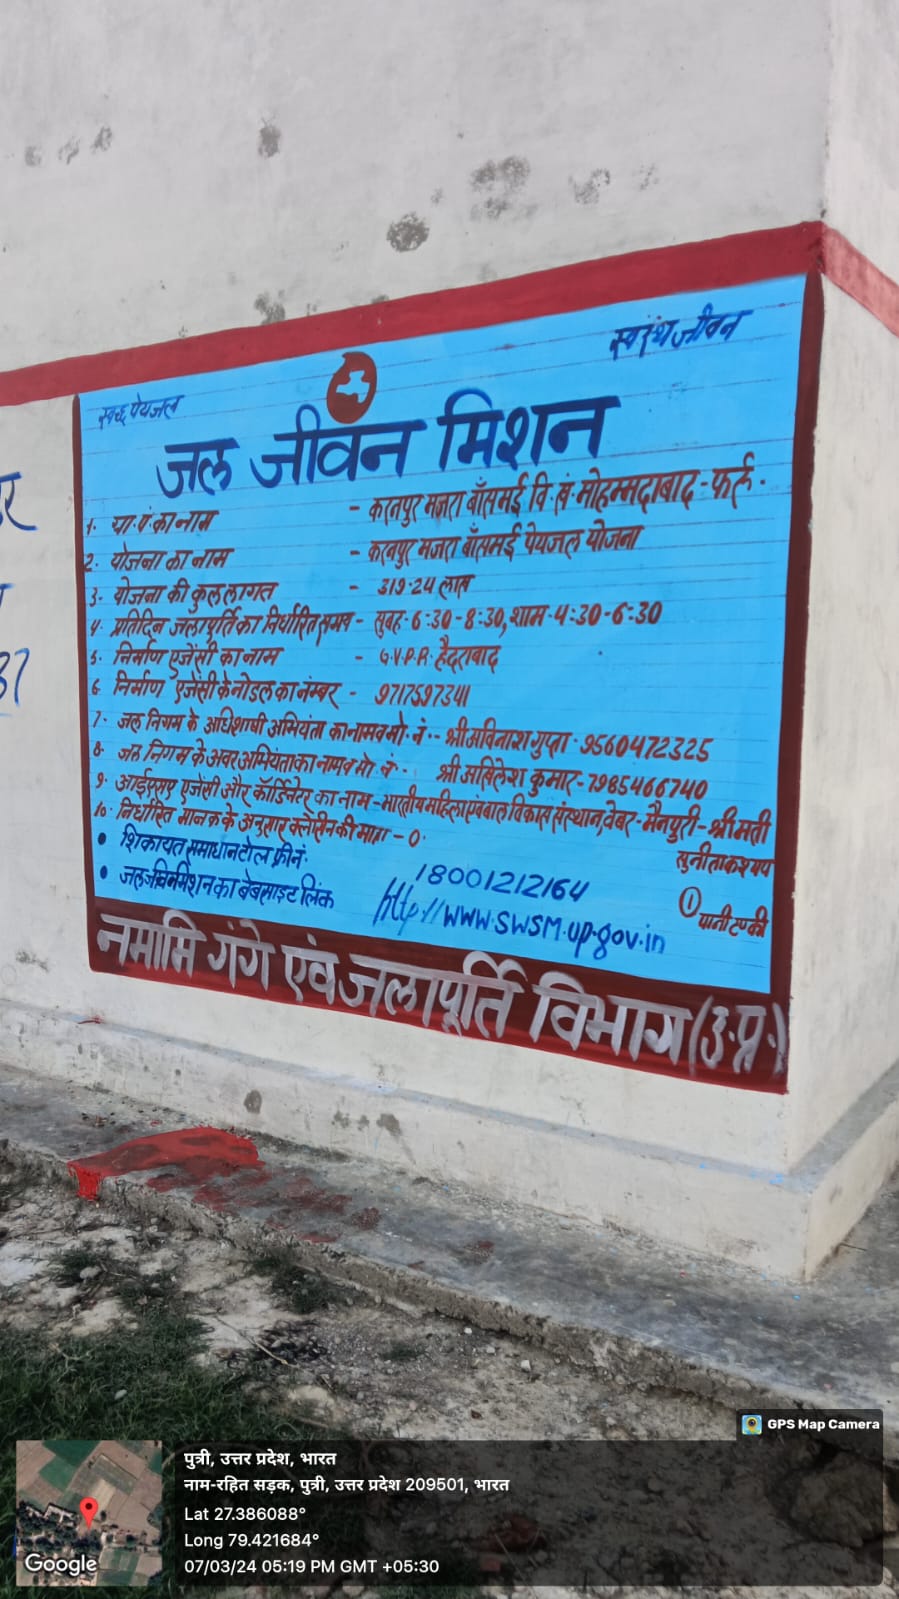 स्वच्छ पेयजल
स्वस्थ जीवन
जल जीवन मिशन
1. ग्रा.पं.का नाम - करनपुर मजरा बाँसमई वि.खं.मोहम्मदाबाद-फर्रु.
2. योजना का नाम - करनपुर मजरा बाँसमई पेयजल योजना
3. योजना की कुल लागत - 319.24 लाख
4. प्रतिदिन जलापूर्ति का निर्धारित समय - सुबह-6:30-8:30, शाम-4:30-6:30
5. निर्माण एजेंसी का नाम - G.V.P.R. हैदराबाद
6. निर्माण एजेंसी के नोडल का नम्बर - 9717597341
7. जल निगम के अधिशाषी अभियंता का नाम व मो. नं. - श्री अविनाश गुप्ता - 9560472325
8. जल निगम के अवर अभियंता का नाम व मो. नं. श्री अखिलेश कुमार - 7985466740
9. आईएसए एजेंसी और कॉर्डिनेटर का नाम - भारतीय महिला एंव बाल विकास संस्थान, वेबर - मैनपुरी - श्रीमती
सुनीता कश्यप
10. निर्धारित मानक के अनुसार क्लोरीन की मात्रा - 0.
• शिकायत समाधान टोल फ्री नं. 18001212164
• जल जीवन मिशन का बेबसाइट लिंक http://www.swsm.up.gov.in
① पानी टण्की
नमामि गंगे एंव जलापूर्ति विभाग (उ.प्र.)
37
GPS Map Camera
पुत्री, उत्तर प्रदेश, भारत
नाम-रहित सड़क, पुत्री, उत्तर प्रदेश 209501, भारत
Lat 27.386088°
Long 79.421684°
07/03/24 05:19 PM GMT +05:30
Google